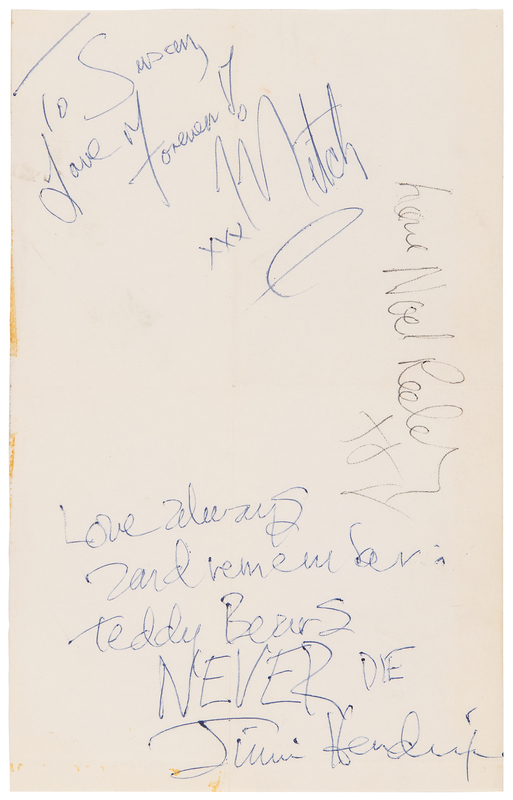 To Susan
Love Forever
Mitch
xxx
Love Noel Redding
xx
Love always
and remember:
teddy Bears
NEVER DIE
Jimi Hendrix